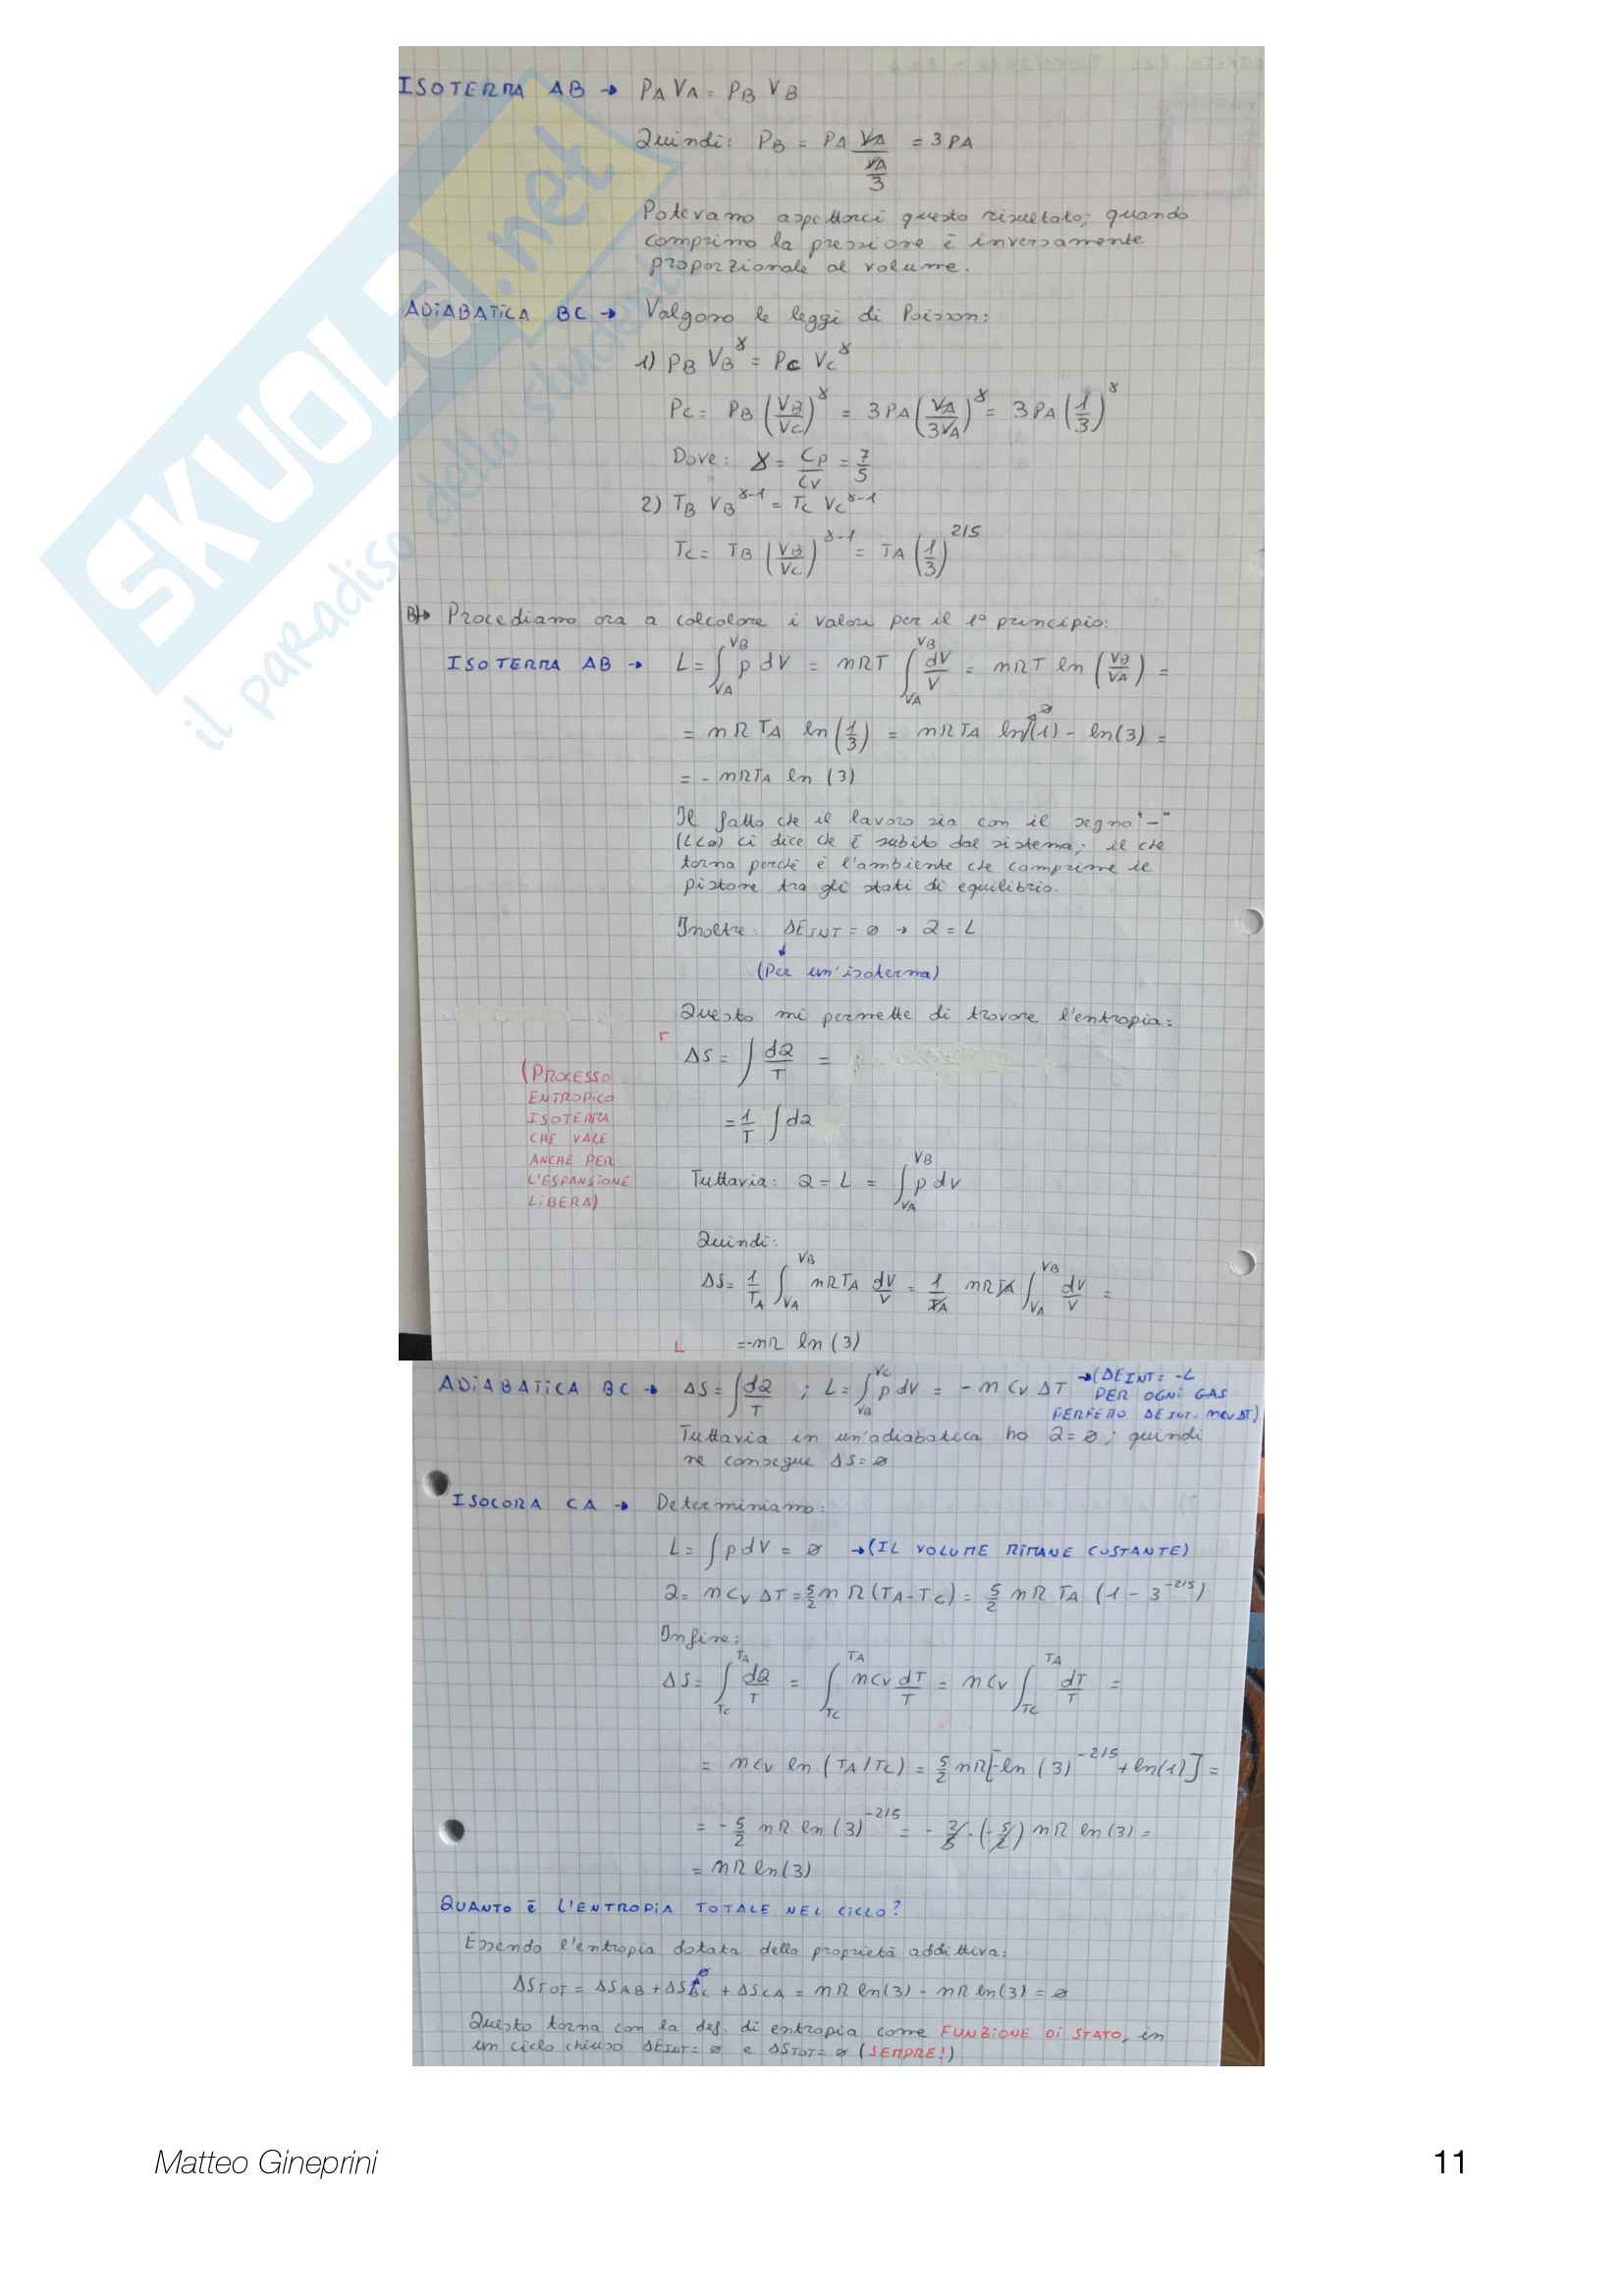 ISOTERMA AB → PA VA = PB VB
Quindi: PB = PA VA/(VA/3) = 3 PA
Potevamo aspettarci questo risultato; quando
comprimo la pressione è inversamente
proporzionale al volume.
ADIABATICA BC → Valgono le leggi di Poisson:
1) PB VB^γ = PC VC^γ
PC = PB (VB/VC)^γ = 3PA (VA/3VA)^γ = 3PA (1/3)^γ
Dove: γ = Cp/Cv = 7/5
2) TB VB^γ-1 = TC VC^γ-1
TC = TB (VB/VC)^γ-1 = TA (1/3)^2/5
B)→ Procediamo ora a calcolare i valori per il 1° principio:
ISOTERMA AB → L = ∫VA^VB p dV = nRT ∫VA^VB dV/V = nRT ln (VB/VA) =
= nRTA ln (1/3) = nRTA ln(1) - ln(3) =
= - nRTA ln (3)
Il fatto che il lavoro sia con il segno "-"
(L<0) ci dice che è subito dal sistema; il che
torna perché è l'ambiente che comprime il
pistone tra gli stati di equilibrio.
Inoltre: ΔEINT = ø → Q = L
(Per un'isoterma)
Questo mi permette di trovare l'entropia:
ΔS = ∫ dQ/T =
= 1/T ∫ dQ
(PROCESSO
ENTROPICO
ISOTERMA
CHE VALE
ANCHE PER
L'ESPANSIONE
LIBERA)
Tuttavia: Q = L = ∫VA^VB p dV
Quindi:
ΔS = 1/TA ∫VA^VB nRTA dV/V = 1/TA nRTA ∫VA^VB dV/V =
= -nR ln (3)
ADIABATICA BC → ΔS = ∫ dQ/T ; L = ∫VB^VC p dV = - n Cv ΔT → (ΔEINT = -L
PER OGNI GAS
PERFETTO ΔEINT = nCvΔT)
Tuttavia in un'adiabatica ho Q = ø; quindi
ne consegue ΔS = ø
ISOCORA CA → Determiniamo:
L = ∫ p dV = ø → (IL VOLUME RIMANE COSTANTE)
Q = n Cv ΔT = 5/2 n R (TA - TC) = 5/2 nR TA (1 - 3^-2/5)
Infine:
ΔS = ∫TC^TA dQ/T = ∫TC^TA nCv dT/T = nCv ∫TC^TA dT/T =
= nCv ln (TA/TC) = 5/2 nR [-ln (3)^-2/5 + ln(1)] =
= - 5/2 nR ln (3)^-2/5 = - 2/5 · (-5/2) nR ln (3) =
= nR ln (3)
QUANTO È L'ENTROPIA TOTALE NEL CICLO?
Essendo l'entropia dotata della proprietà addittiva:
ΔSTOT = ΔSAB + ΔSBC + ΔSCA = nR ln(3) - nR ln(3) = ø
Questo torna con la def. di entropia come FUNZIONE DI STATO, in
un ciclo chiuso ΔEINT = ø e ΔSTOT = ø (SEMPRE!)
SKUOLA.net
il paradiso dello studente
Matteo Gineprini
11